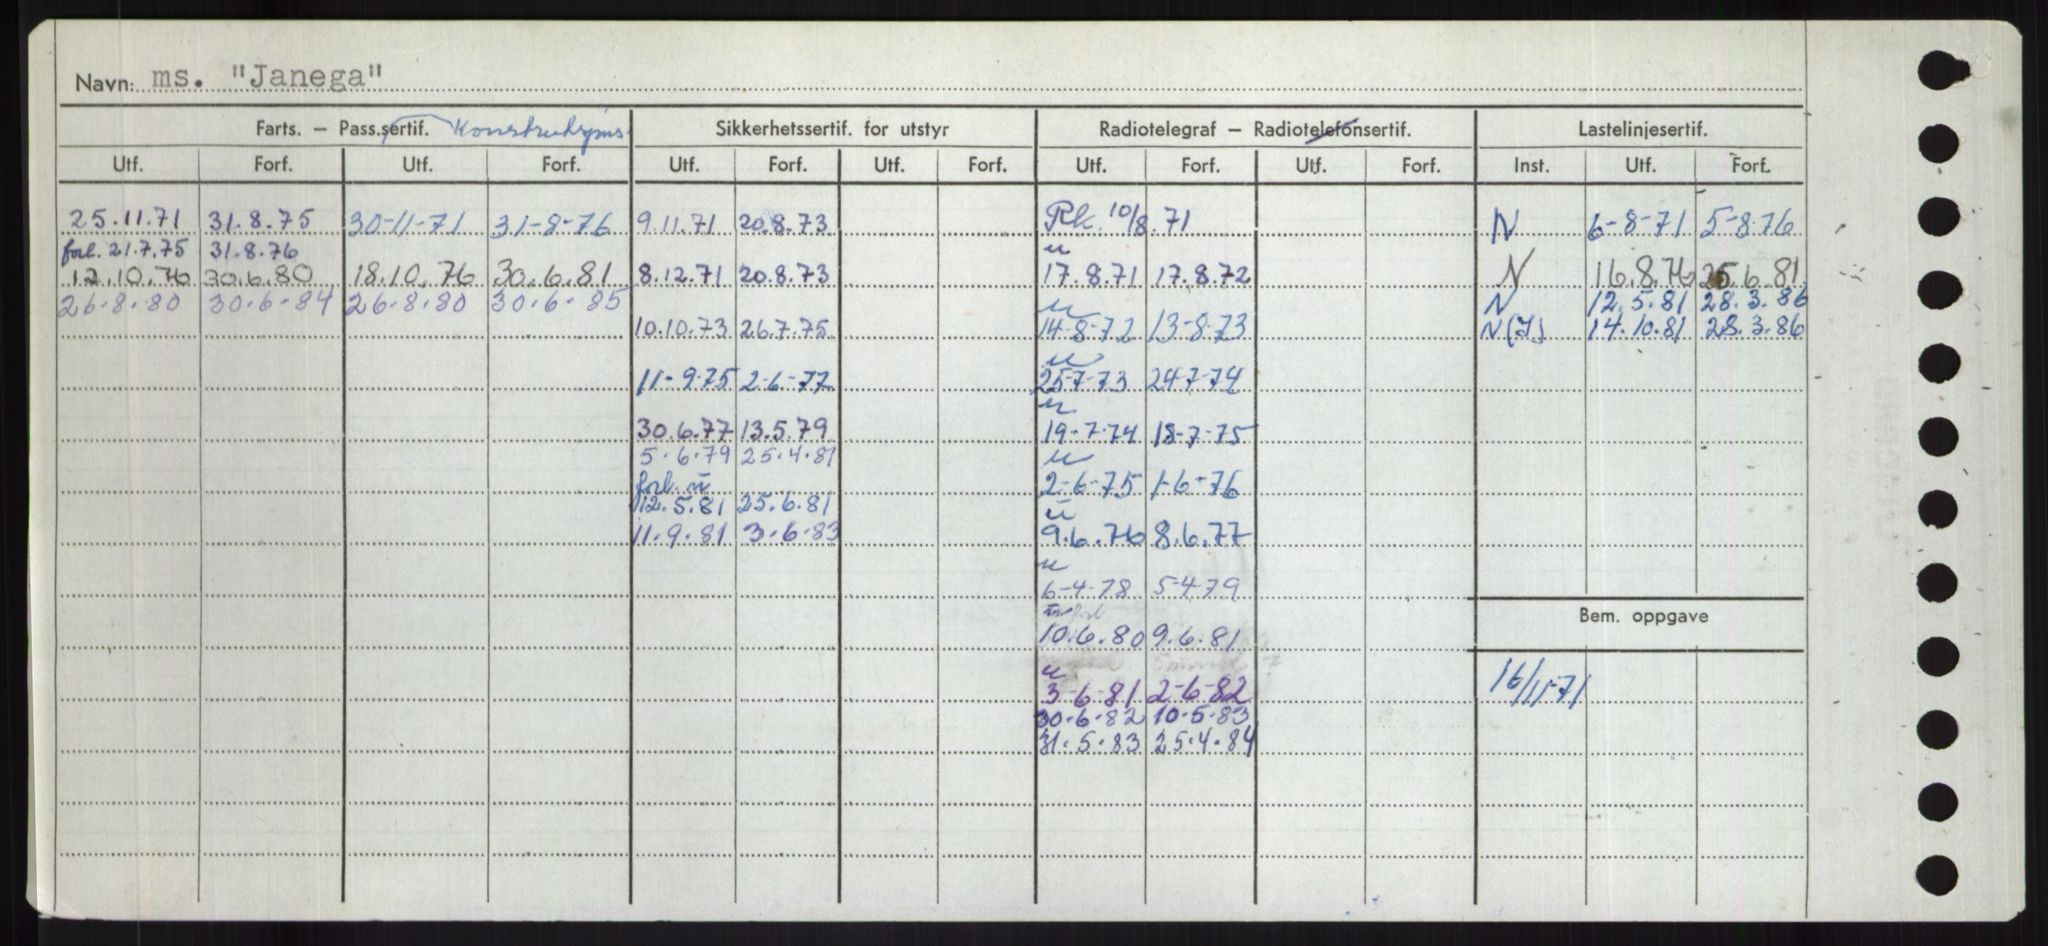 Navn: ms. "Janega"
Farts. – Pass.sertif. Konstruksjons- Sikkerhetssertif. for utstyr Radiotelegraf – Radiotelefonsertif. Lastelinjesertif.
Utf. Forf. Utf. Forf. Utf. Forf. Utf. Forf. Utf. Forf. Utf. Forf. Inst. Utf. Forf.
25.11.71 31.8.75 30-11-71 31-8-76 9.11.71 20.8.73 Rk. 10/8.71 N 6-8-71 5-8-76
forl. 21.7.75 31.8.76 u
12.10.76 30.6.80 18.10.76 30.6.81 8.12.71 20.8.73 17.8.71 17.8.72 N 16.8.76 25.6.81
26.8.80 30.6.84 26.8.80 30.6.85 u N 12.5.81 28.3.86
10.10.73 26.7.75 14-8-72 13-8-73 N(I) 14.10.81 28.3.86
u
11-9-75 2-6-77 25-7-73 24-7-74
u
30.6.77 13.5.79 19-7-74 18-7-75
5.6.79 25.4.81 u
forl. u 2-6-75 1-6-76
12.5.81 25.6.81 u
11.9.81 3.6.83 9.6.76 8.6.77
u
6-4-78 5-4-79
forl Bem. oppgave
10.6.80 9.6.81
u 16/11-71
3-6-81 2-6-82
30.6.82 10.5.83
31.5.83 25.4.84